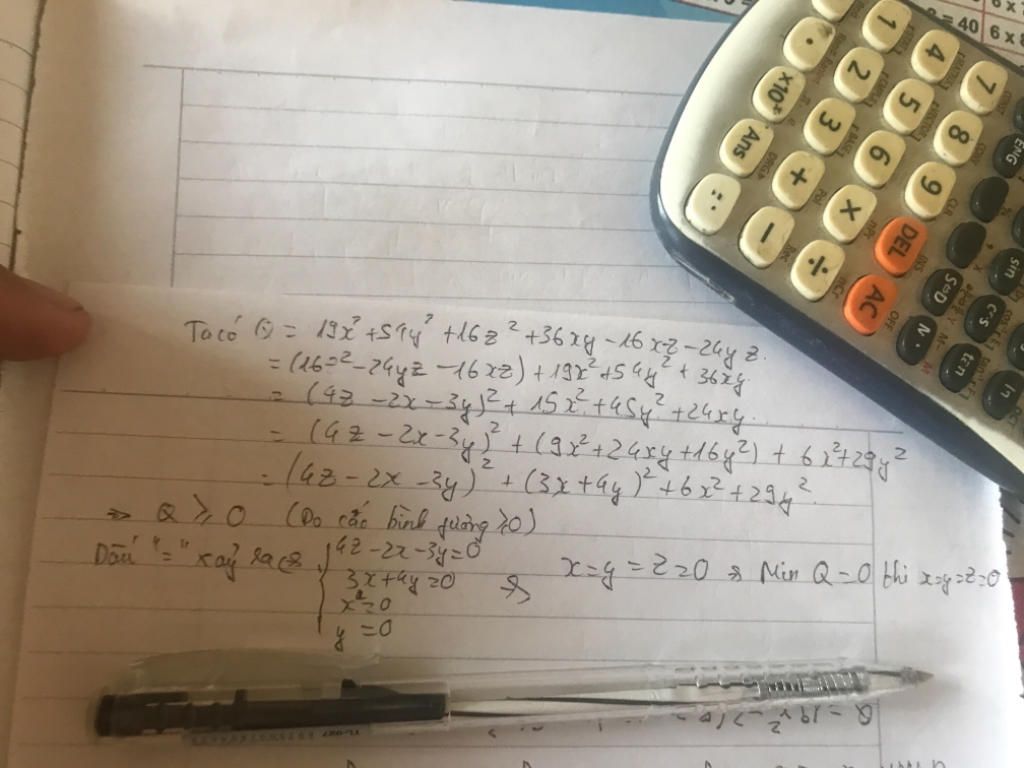 = 40
6 x
6 x 8
1
4
7
ENG
.
2
5
8
x10ˣ
3
6
9
Ans
+
x
DEL
sin
=
−
÷
AC
S⇔D
cos
M+
tan
OFF
Ta có Q = 19x² + 54y² + 16z² + 36xy − 16xz − 24yz.
= (16z² − 24yz − 16xz) + 19x² + 54y² + 36xy
= (4z − 2x − 3y)² + 15x² + 45y² + 24xy.
= (4z − 2x − 3y)² + (9x² + 24xy + 16y²) + 6x² + 29y²
= (4z − 2x − 3y)² + (3x + 4y)² + 6x² + 29y².
=> Q ≥ 0 (Do các bình phương ≥ 0)
Dấu "=" xảy ra <=> { 4z − 2x − 3y = 0
3x + 4y = 0
x = 0
y = 0
<=> x = y = z = 0 => Min Q = 0 khi x = y = z = 0